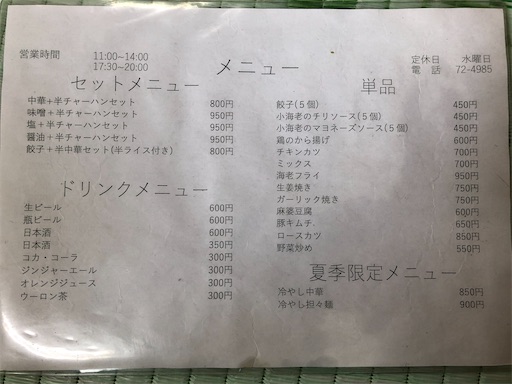 営業時間 11:00~14:00
17:30~20:00
メニュー
定休日 水曜日
電話 72-4985
セットメニュー
中華+半チャーハンセット 800円
味噌+半チャーハンセット 950円
塩+半チャーハンセット 950円
醤油+半チャーハンセット 950円
餃子+半中華セット(半ライス付き) 800円
ドリンクメニュー
生ビール 600円
瓶ビール 600円
日本酒 600円
日本酒 350円
コカ・コーラ 300円
ジンジャーエール 300円
オレンジジュース 300円
ウーロン茶 300円
単品
餃子(5個) 450円
小海老のチリソース(5個) 450円
小海老のマヨネーズソース(5個) 450円
鶏のから揚げ 600円
チキンカツ 700円
ミックス 700円
海老フライ 950円
生姜焼き 750円
ガーリック焼き 750円
麻婆豆腐 600円
豚キムチ 650円
ロースカツ 850円
野菜炒め 550円
夏季限定メニュー
冷やし中華 850円
冷やし担々麺 900円